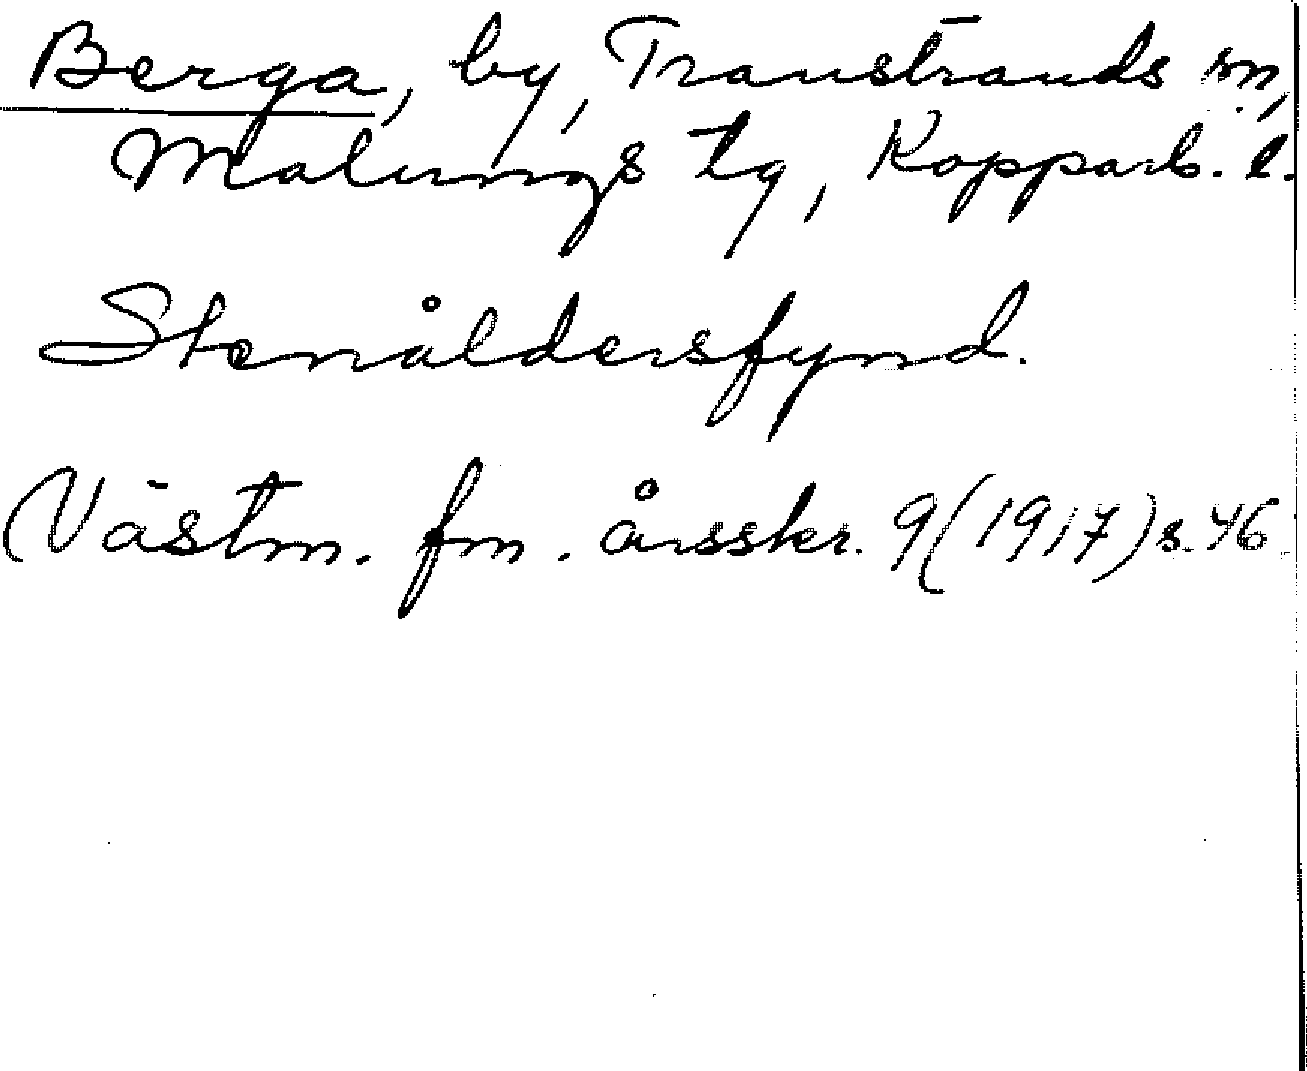 Berga, by, Transtrands sn,
Malungs tg, Kopparb. l.
Stenåldersfynd.
Västm. fm. årsskr. 9 (1917) s. 46.